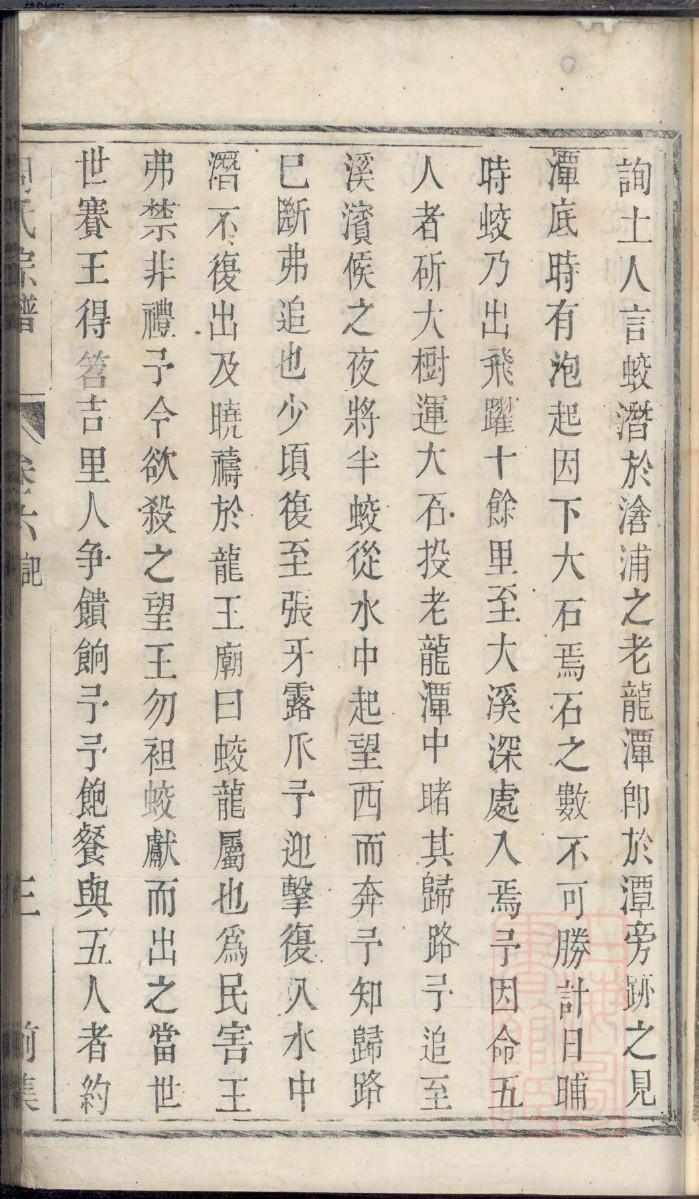 詢土人言蛟潛於滄浦之老龍潭卽於潭旁跡之見
潭底時有泡起因下大石焉石之數不可勝計日晡
時蛟乃出飛躍十餘里至大溪深處入焉予因命五
人者斫大樹運大石投老龍潭中睹其歸路予追至
溪濱候之夜將半蛟從水中起望西而奔予知歸路
已斷弗追也少頃復至張牙露爪予迎擊復入水中
潛不復出及曉禱於龍王廟曰蛟龍屬也爲民害王
弗禁非禮予今欲殺之望王勿袒蛟獻而出之當世
世賽王得筶吉里人争饋餉予予飽餐與五人者約
周氏宗譜 卷六 記 三 前集